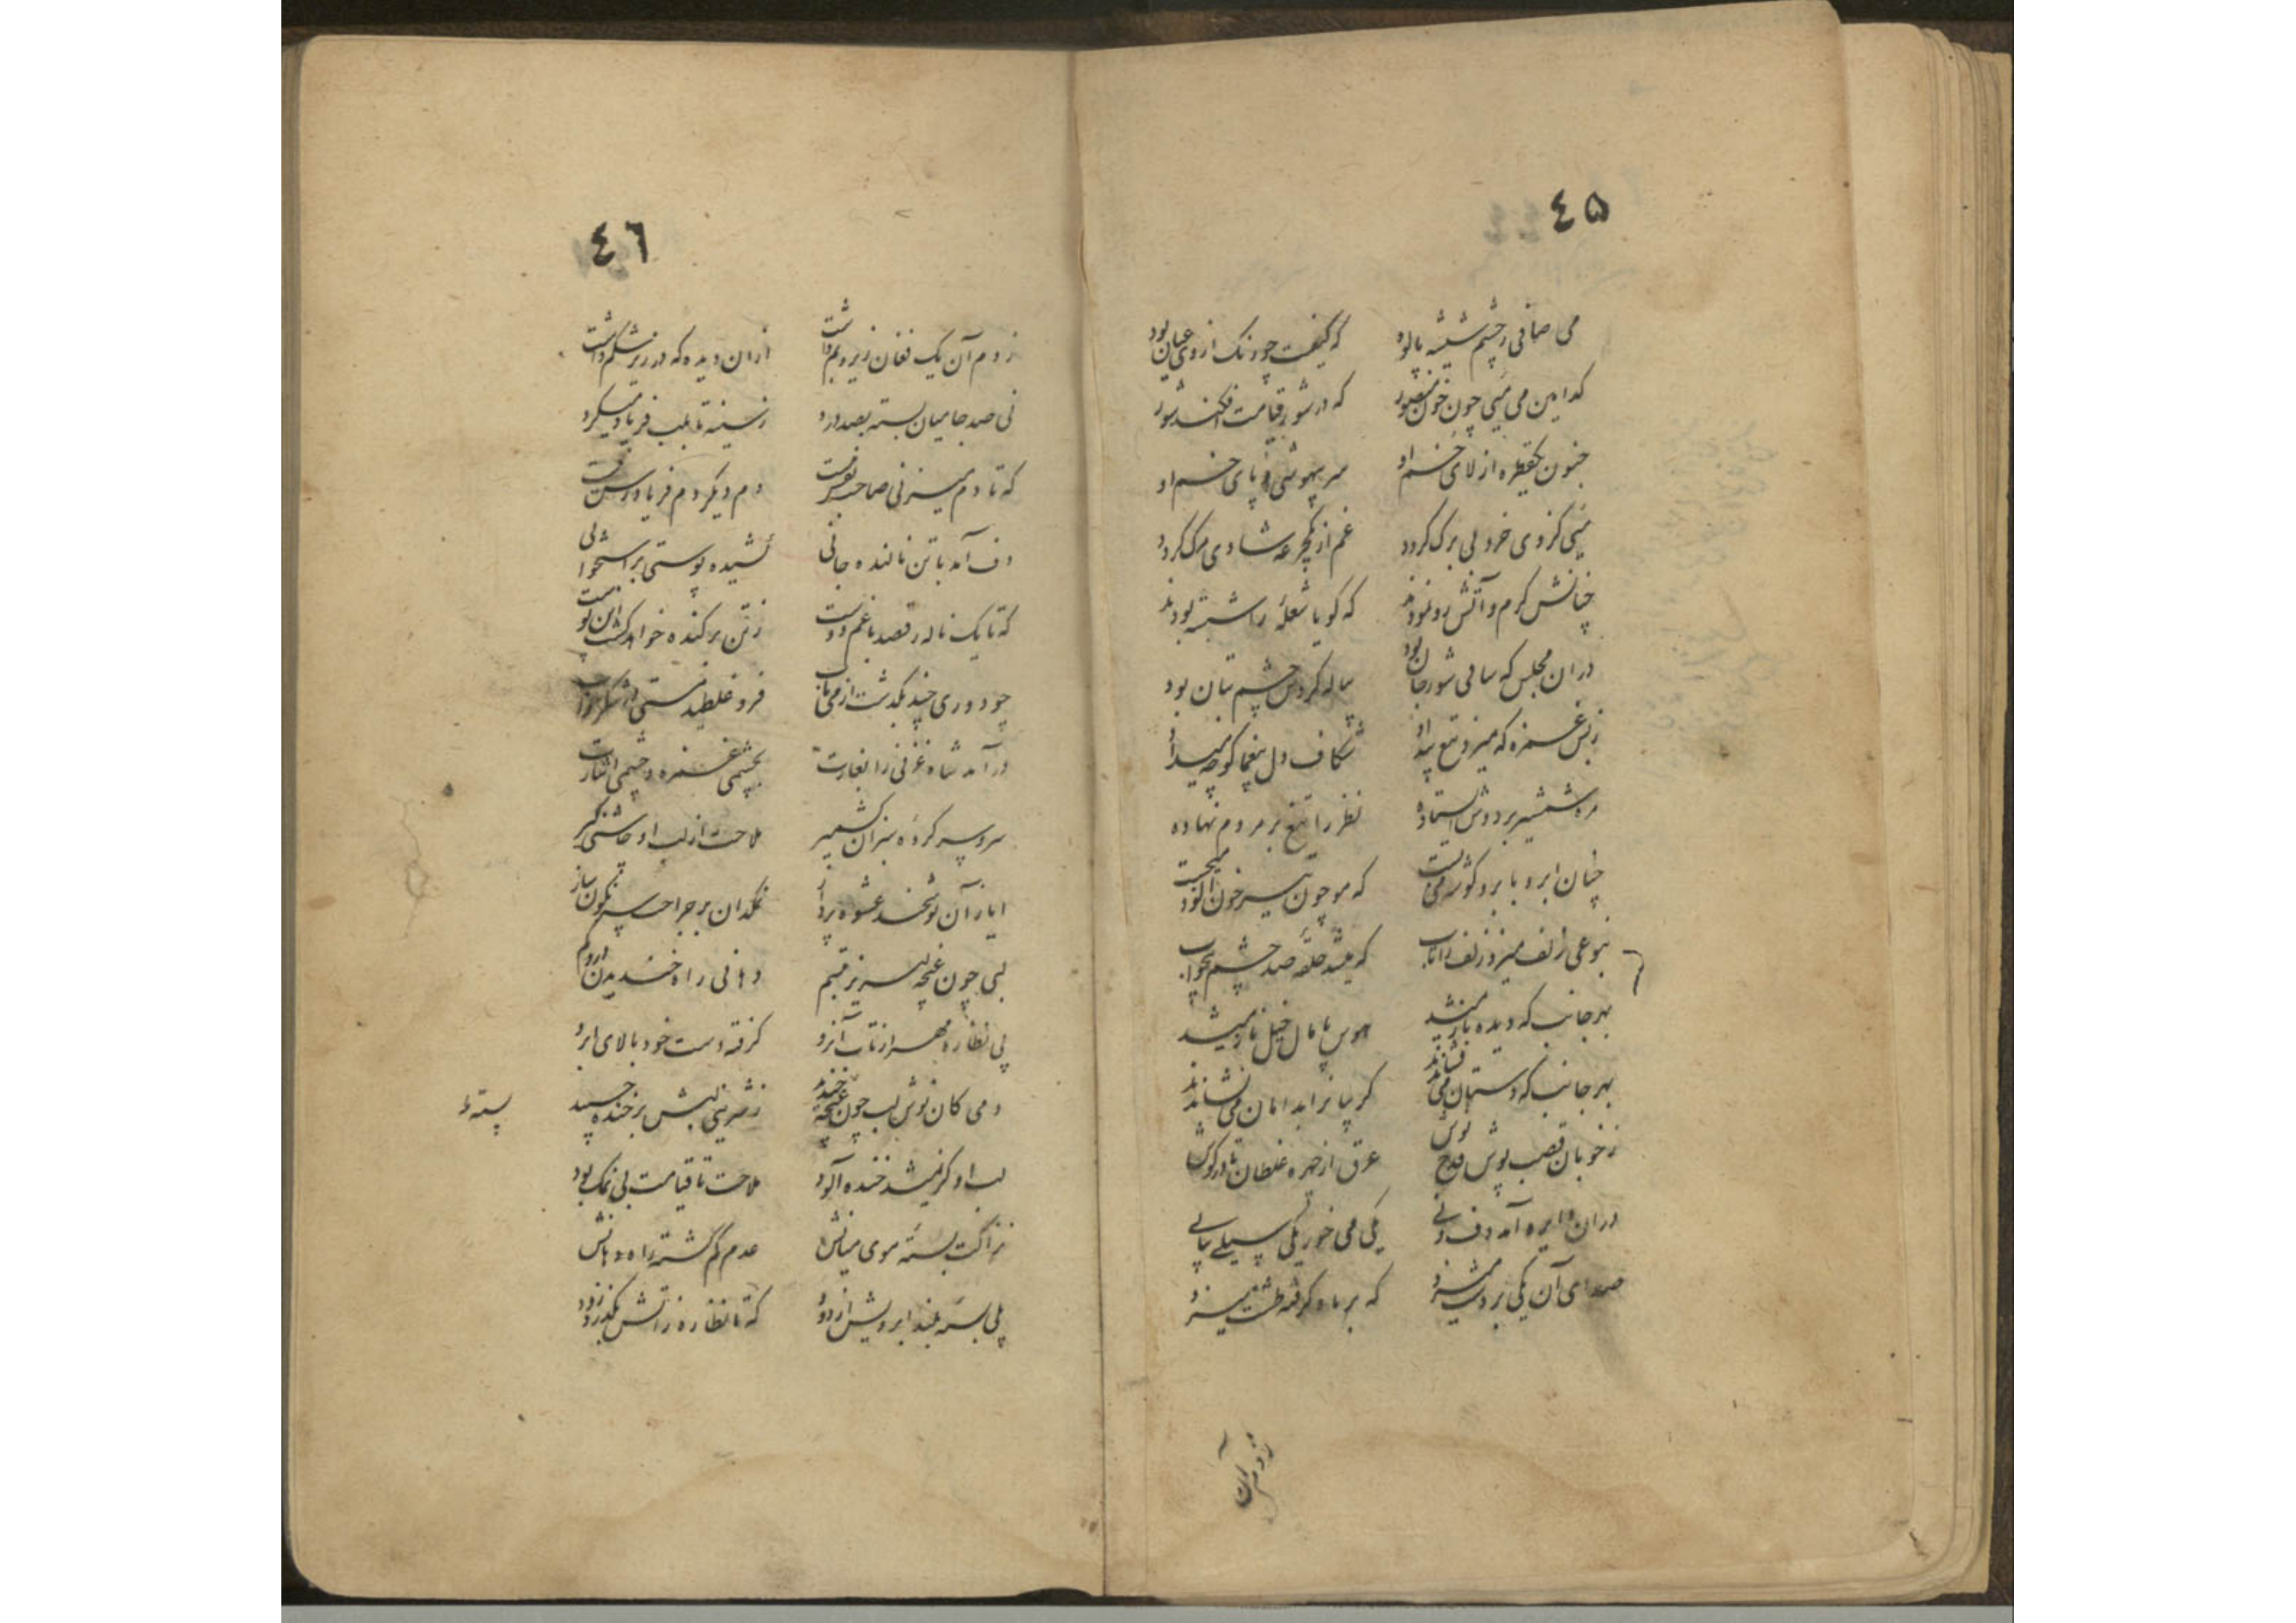 ٤٥
می صافی ز چشم شیشه پالود که کیفیت چو رنک از وی عیان بود
کدامین می میی چون خون منصور که در شور قیامت افکند شور
جنون یکقطره از لای خم او سر بیهوشی و پای خم او
میی کز وی خرد بی برک کردد غم از یکجرعه شادی مرک کردد
چنانش کرم و آتش رو نمودند که کویا شعله را شسته بودند
دران مجلس که ساقی شور جان بود پیاله کردش چشم بتان بود
زبس غمزه که میزد تیغ بیداد شکاف دل بیغما کوچه میداد
مژه شمشیر بر دوش ایستاده نظر را تیغ بر مردم نهاده
چنان ابرو بابرو کوشه می بست که مو چون تیر خون آلود میجست
بنوعی زلف میزد زلف را تاب که میشد حلقه صد چشم بیخواب
بهر جانب که دیده باز میشد هوس پامال خیل ناز میشد
بهر جانب که دستان می فشاندند کریبانرا بدامان می نشاندند
ز خوبان قصب پوش قدح نوش عرق از چهره غلطان تا در کوش
دران دایره آمد دف و نی یکی می خورد یکی سیلی پیاپی
صدای آن یکی بر دست میزد که بر باد کرفته طشت میزد
ز دم آن
٤٦
ز دم آن یک فغان زیر و بم داشت ازان دیده که در زیر شکم داشت
نی صد جا میان بسته بصد درد ز سینه تا بلب فریاد میکرد
که تا دم میزنی صاحب نفس نیست دم دیکر دم فریاد رس نیست
دف آمد با تن نالنده جانی کشیده پوستی بر استخوانی
که تا یک ناله رقصد با غم دوست ز تن برکنده خواهد کشت این پوست
چو دوری چند بکذشت از می ناب فرو غلطید مستی در شکر خواب
در آمد شاه غزنی را بغارت بچشمی غمزه و چشمی اشارت
سر و سر کرده سبزان کشمیر ملاحت از لب او چاشنی کیر
ایاز آن نوشخند عشوه پرداز نمکدان بر جراحت سرنکون ساز
لبی چون غنچه لبریز تبسم دهانی راه خندیدن درو کم
پی نظاره مهر از تاب آن رو کرفته دست خود بالای ابرو
دمی کان نوش لب چون غنچه خندید ز شیرینی لبش بر خنده چسپید
پسته
لب او کر نمیشد خنده آلود ملاحت تا قیامت بی نمک بود
نزاکت بسته موی میانش عدم کم کشته راه دهانش
پلی بسته بلند ابرویش از دود که تا نظاره ز آتش بکذرد زود